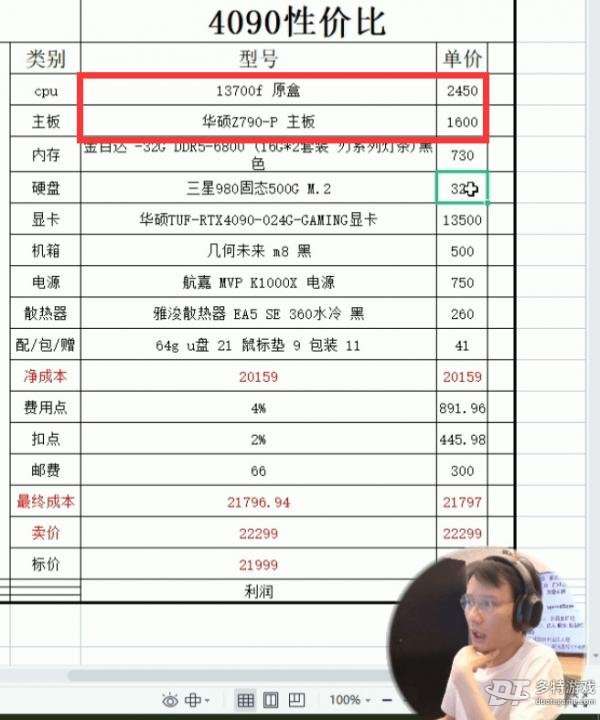 4090性价比
类别 型号 单价
cpu 13700f 原盒 2450
主板 华硕Z790-P 主板 1600
内存 金百达 -32G DDR5-6800 (16G*2套装 刃系列灯条)黑色 730
硬盘 三星980固态500G M.2 32
显卡 华硕TUF-RTX4090-O24G-GAMING显卡 13500
机箱 几何未来 m8 黑 500
电源 航嘉 MVP K1000X 电源 750
散热器 雅浚散热器 EA5 SE 360水冷 黑 260
配/包/赠 64g u盘 21 鼠标垫 9 包装 11 41
净成本 20159 20159
费用点 4% 891.96
扣点 2% 445.98
邮费 66 300
最终成本 21796.94 21797
卖价 22299 22299
标价 21999
利润
100%
DT 多特游戏
duotegame.com